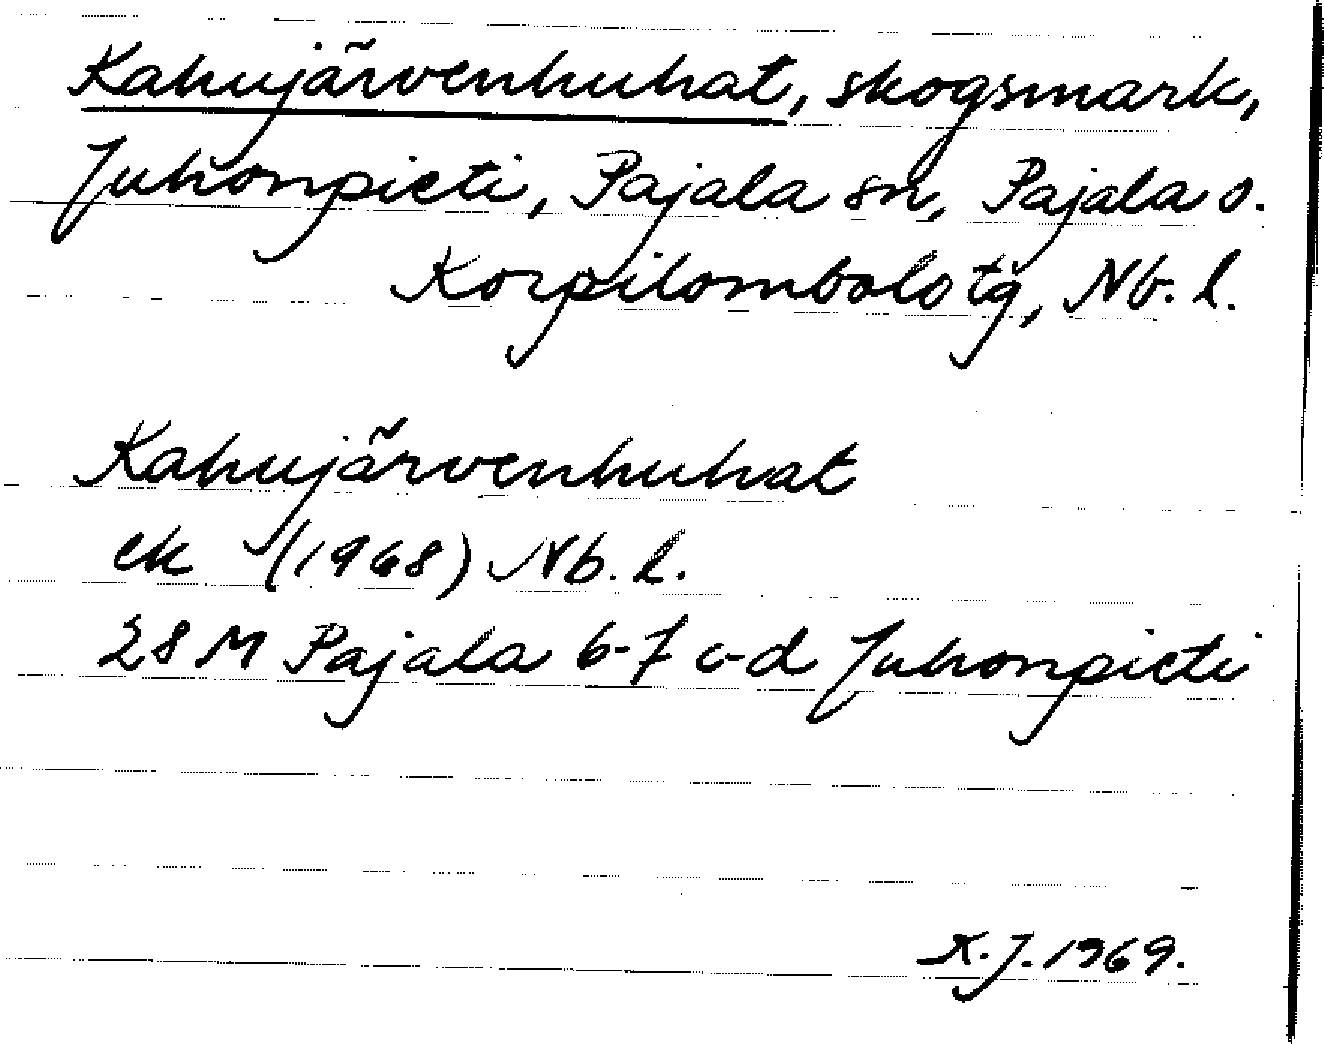 Kahujärvenhuhat, skogsmark,
Juhonpieti, Pajala sn, Pajala o.
Korpilombolo tg, Nb. l.
Kahujärvenhuhat
ek (1968) Nb. l.
28 M Pajala 6-7 c-d Juhonpieti
K.J. 1969.